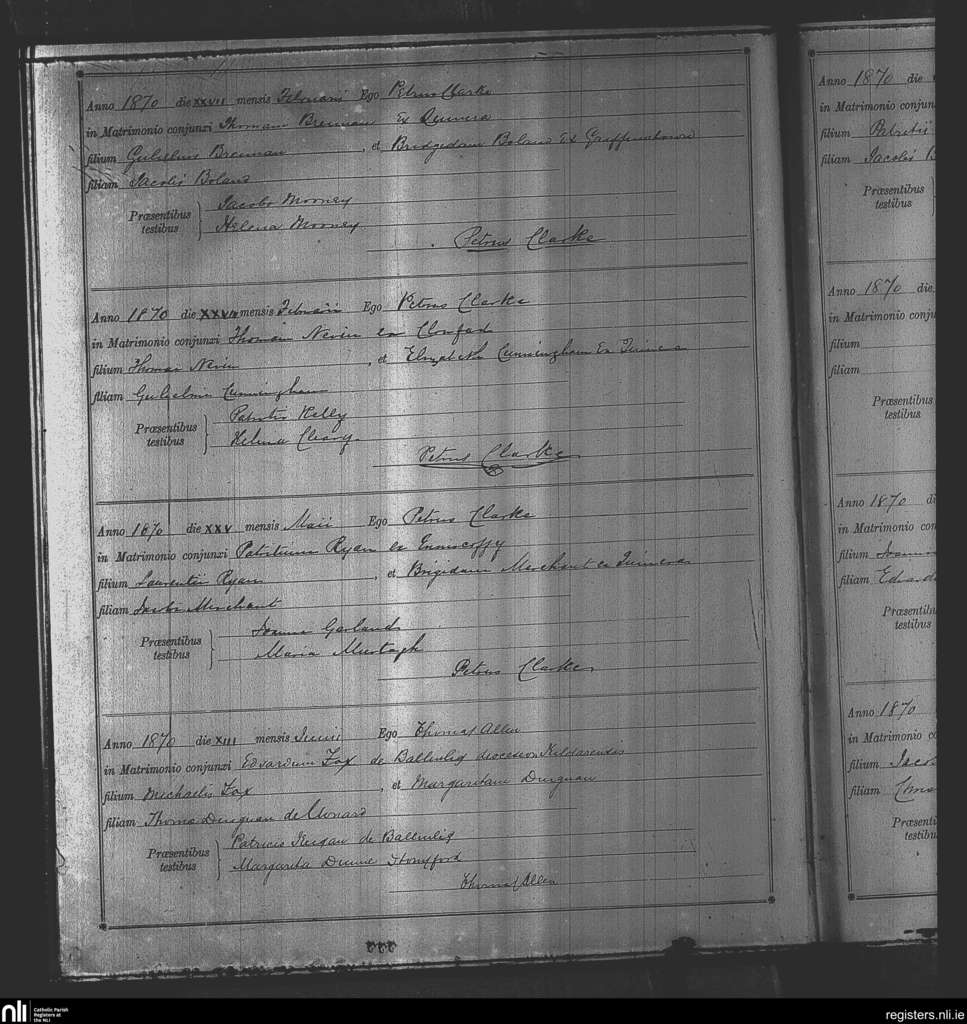 Anno 1870 die XXVII mensis Februarii Ego Petrus Clarke
in Matrimonio conjunxi Thomam Brennan Ex
filium Gulielmi Brennan, et Bridgedam Boland Ex
filiam Jacobi Boland
Præsentibus testibus
Jacobo Mooney
Helena Mooney
Petrus Clarke
Anno 1870 die mensis Februarii Ego Petrus Clarke
in Matrimonio conjunxi Thomam Nevin ex Clonfad
filium Thomae Nevin, et Elizabeth Cunningham Ex
filiam Gulielmi Cunningham
Præsentibus testibus
Kelly
Helena Cleary
Petrus Clarke
Anno 1870 die XXV mensis Maii Ego Petrus Clarke
in Matrimonio conjunxi Patritium Ryan ex Enniscoffy
filium Laurentii Ryan, et Brigidam Merchant ex
filiam Merchant
Præsentibus testibus
Joanne Garland
Maria Murtagh
Petrus Clarke
Anno 1870 die XIII mensis Junii Ego Thomas Allen
in Matrimonio conjunxi Edvardum Fox de Kildarensis
filium Michaelis Fox, et Margaritam
filiam Thomae de Clonard
Præsentibus testibus
Patricio de
Margarita Dunne
Thomas Allen
Anno 1870 die
in Matrimonio conjun
filium Patritii
filiam Jacobi B
Præsentibus
testibus
Anno 1870 die
in Matrimonio conju
filium
filiam
Præsentibus
testibus
Anno 1870 di
in Matrimonio con
filium
filiam
Præsentib
testibu
Anno 1870
in Matrimonio co
filium
filiam
Præsenti
testibu
nli
Catholic Parish
Registers at
the NLI
registers.nli.ie